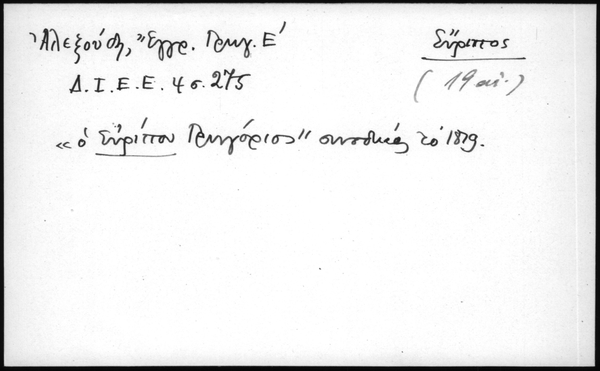 Ἀλεξούδη, "Ἔγγρ. Γρηγ. Ε'
Δ.Ι.Ε.Ε. 4 σ. 275
Εὔριπος
(19 αἰ.)
«ὁ Εὐρίπου Γρηγόριος" συνοδικός τὸ 1819.